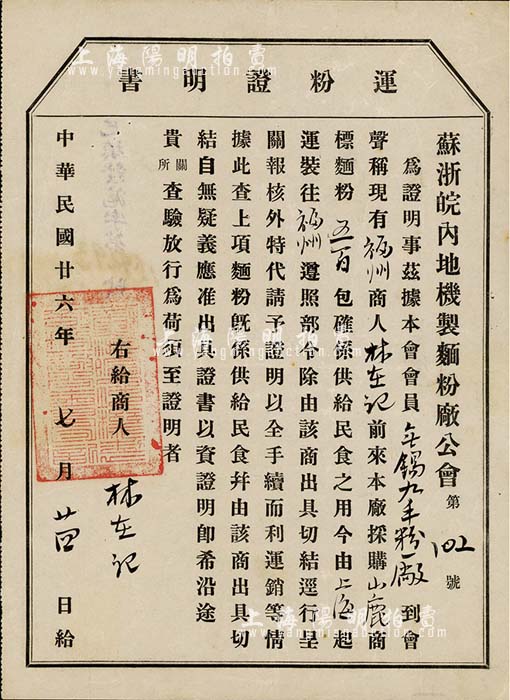 運粉證明書
蘇浙皖內地機製麵粉廠公會第102號
為證明事茲據本會會員無錫九丰粉廠到會
聲稱現有福州商人林在記前來本廠採購山鹿商
標麵粉五百包確係供給民食之用今由上海起
運裝往福州遵照部令除由該商出具切結逕行呈
關報核外特代請予證明以全手續而利運銷等情
據此查上項麵粉既係供給民食幷由該商出具切
結自無疑義應准出具證書以資證明卽希沿途
貴關所查驗放行為荷須至證明者
右給商人 林在記
中華民國廿六年 七月 日給
上海陽明拍賣
www.yangmingauction.com
上海陽明拍賣
www.yangmingauction.com
上海陽明拍賣
www.yangmingauction.com